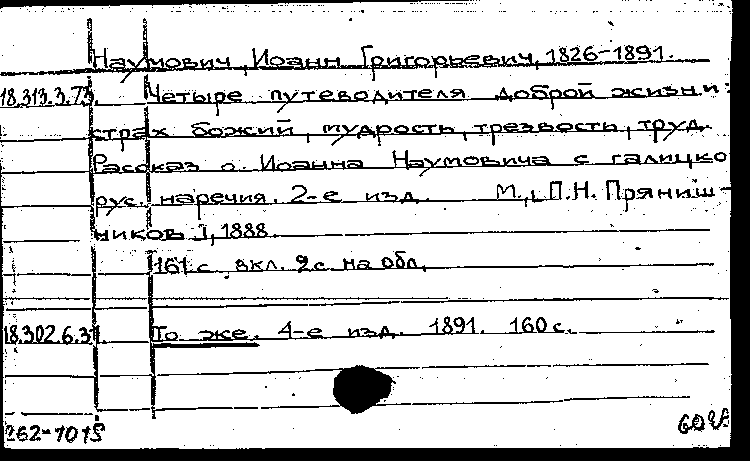 Наумович, Иоанн Григорьевич, 1826-1891.
18.313.3.73. Четыре путеводителя доброй жизни:
страх божий, мудрость, трезвость, труд.
Рассказ о. Иоанна Наумовича с галицко
рус. наречия. 2-е изд. М., [П.Н. Пряниш-
ников], 1888.
161 с. вкл. 2 с. на обл.
18.302.6.31. То же. 4-е изд. 1891. 160 с.
262-1015